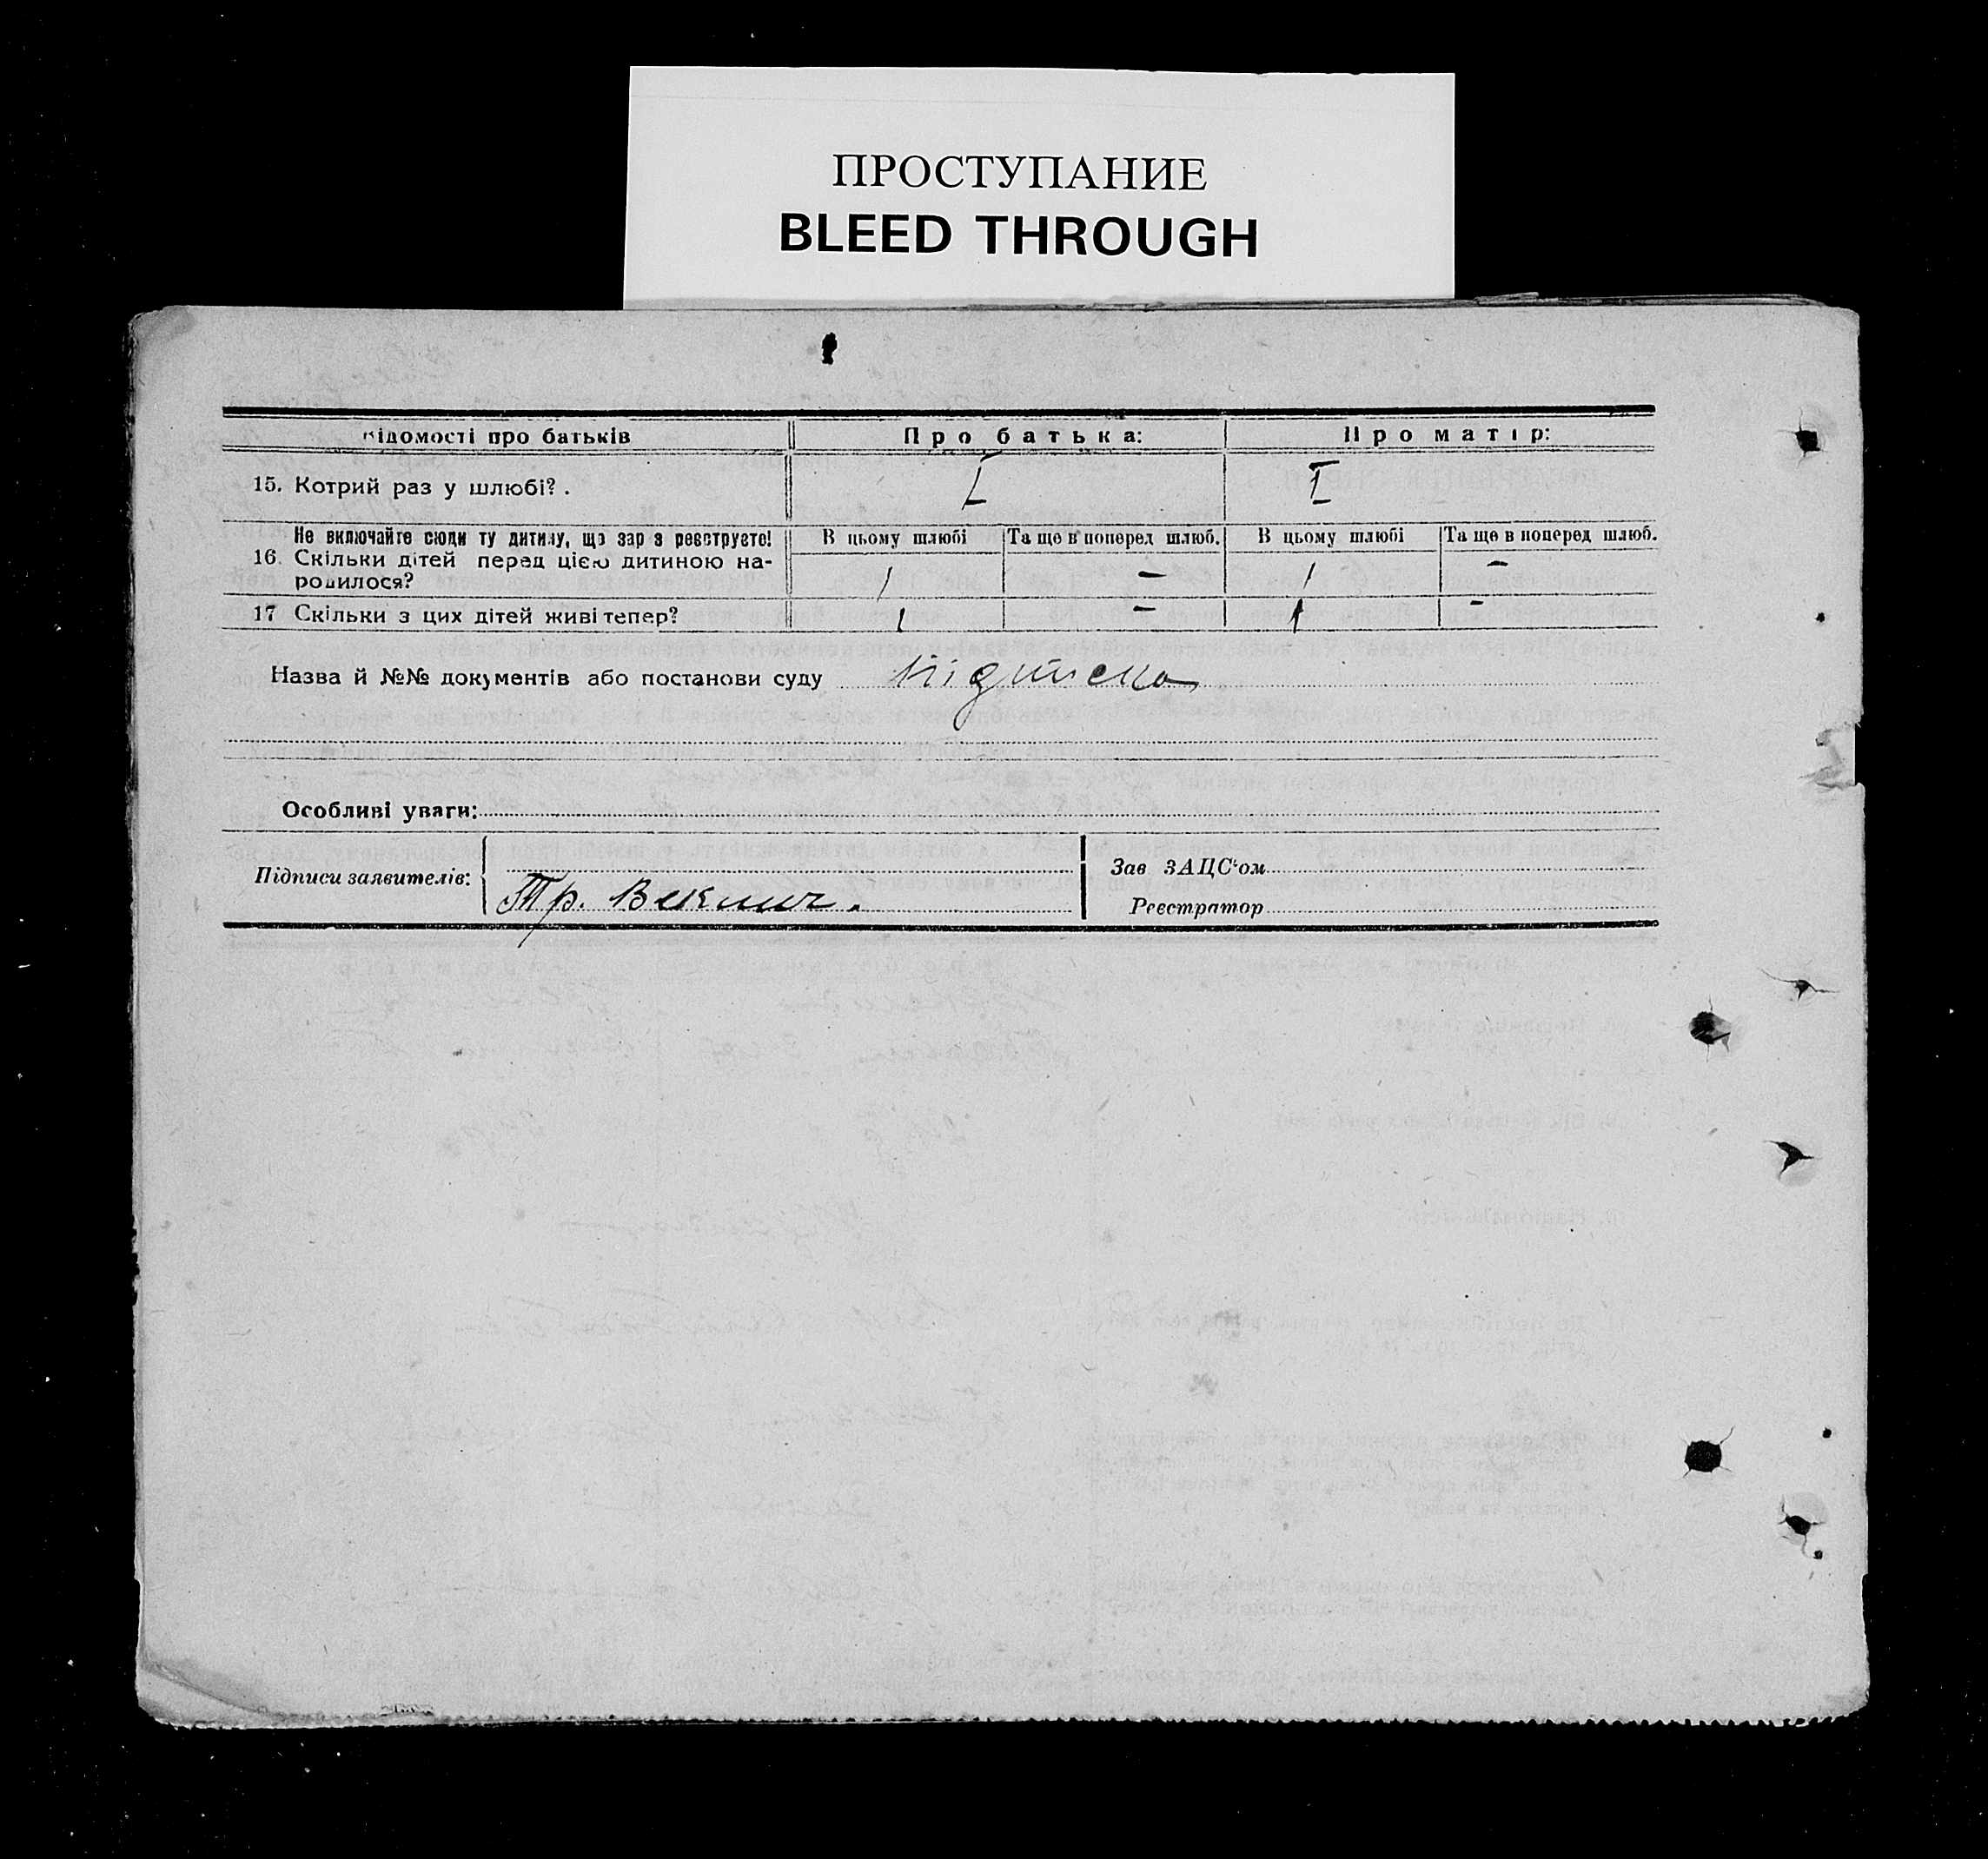 ПРОСТУПАНИЕ
BLEED THROUGH
ідомості про батьків Про батька: Про матір:
15. Котрий раз у шлюбі? . I I
Не включайте сюди ту дитину, що зар з реєструєте! В цьому шлюбі Та ще в поперед шлюб. В цьому шлюбі Та ще в поперед шлюб.
16. Скільки дітей перед цією дитиною на-
родилося? 1 — 1 —
17 Скільки з цих дітей живі тепер? 1 — 1 -
Назва й №№ документів або постанови суду Підписка
Особливі уваги:
Підписи заявителів: Зав ЗАЦС'ом
Тр. Векшич. Реєстратор